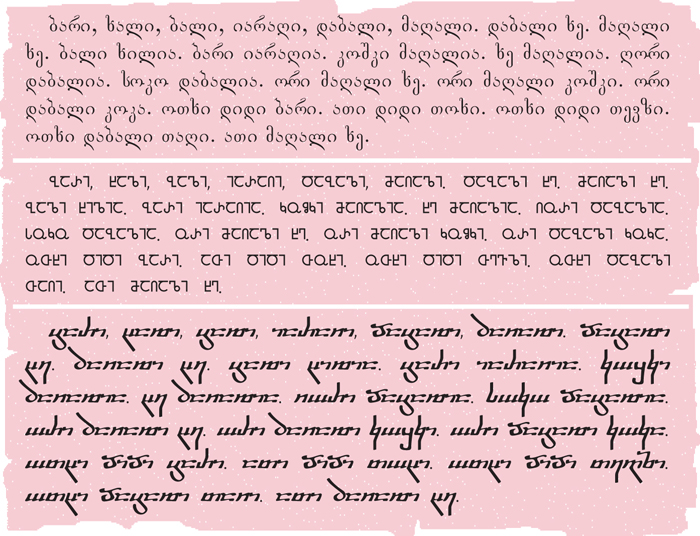 ბარი, ხალი, ბალი, იარაღი, დაბალი, მაღალი. დაბალი ხე. მაღალი
ხე. ბალი ხილია. ბარი იარაღია. კოშკი მაღალია. ხე მაღალია. ღორი
დაბალია. სოკო დაბალია. ორი მაღალი ხე. ორი მაღალი კოშკი. ორი
დაბალი კოკა. ოთხი დიდი ბარი. ათი დიდი თოხი. ოთხი დიდი თევზი.
ოთხი დაბალი თაღი. ათი მაღალი ხე.
ႡႠႰႨ, ႾႠႪႨ, ႡႠႪႨ, ႨႠႰႠႶႨ, ႣႠႡႠႪႨ, ႫႠႶႠႪႨ. ႣႠႡႠႪႨ ႾႤ. ႫႠႶႠႪႨ ႾႤ.
ႡႠႪႨ ႾႨႪႨႠ. ႡႠႰႨ ႨႠႰႠႶႨႠ. ႩႭႸႩႨ ႫႠႶႠႪႨႠ. ႾႤ ႫႠႶႠႪႨႠ. ႶႭႰႨ ႣႠႡႠႪႨႠ.
ႱႭႩႭ ႣႠႡႠႪႨႠ. ႭႰႨ ႫႠႶႠႪႨ ႾႤ. ႭႰႨ ႫႠႶႠႪႨ ႩႭႸႩႨ. ႭႰႨ ႣႠႡႠႪႨ ႩႭႩႠ.
ႭႧႾႨ ႣႨႣႨ ႡႠႰႨ. ႠႧႨ ႣႨႣႨ ႧႭႾႨ. ႭႧႾႨ ႣႨႣႨ ႧႤႥႦႨ. ႭႧႾႨ ႣႠႡႠႪႨ
ႧႠႶႨ. ႠႧႨ ႫႠႶႠႪႨ ႾႤ.
ⴁⴀⴐⴈ, ⴞⴀⴊⴈ, ⴁⴀⴊⴈ, ⴈⴀⴐⴀⴖⴈ, ⴃⴀⴁⴀⴊⴈ, ⴋⴀⴖⴀⴊⴈ. ⴃⴀⴁⴀⴊⴈ
ⴞⴄ. ⴋⴀⴖⴀⴊⴈ ⴞⴄ. ⴁⴀⴊⴈ ⴞⴈⴊⴈⴀ. ⴁⴀⴐⴈ ⴈⴀⴐⴀⴖⴈⴀ. ⴉⴍⴘⴉⴈ
ⴋⴀⴖⴀⴊⴈⴀ. ⴞⴄ ⴋⴀⴖⴀⴊⴈⴀ. ⴖⴍⴐⴈ ⴃⴀⴁⴀⴊⴈⴀ. ⴑⴍⴉⴍ ⴃⴀⴁⴀⴊⴈⴀ.
ⴍⴐⴈ ⴋⴀⴖⴀⴊⴈ ⴞⴄ. ⴍⴐⴈ ⴋⴀⴖⴀⴊⴈ ⴉⴍⴘⴉⴈ. ⴍⴐⴈ ⴃⴀⴁⴀⴊⴈ ⴉⴍⴉⴀ.
ⴍⴇⴞⴈ ⴃⴈⴃⴈ ⴁⴀⴐⴈ. ⴀⴇⴈ ⴃⴈⴃⴈ ⴇⴍⴞⴈ. ⴍⴇⴞⴈ ⴃⴈⴃⴈ ⴇⴄⴅⴆⴈ.
ⴍⴇⴞⴈ ⴃⴀⴁⴀⴊⴈ ⴇⴀⴖⴈ. ⴀⴇⴈ ⴋⴀⴖⴀⴊⴈ ⴞⴄ.